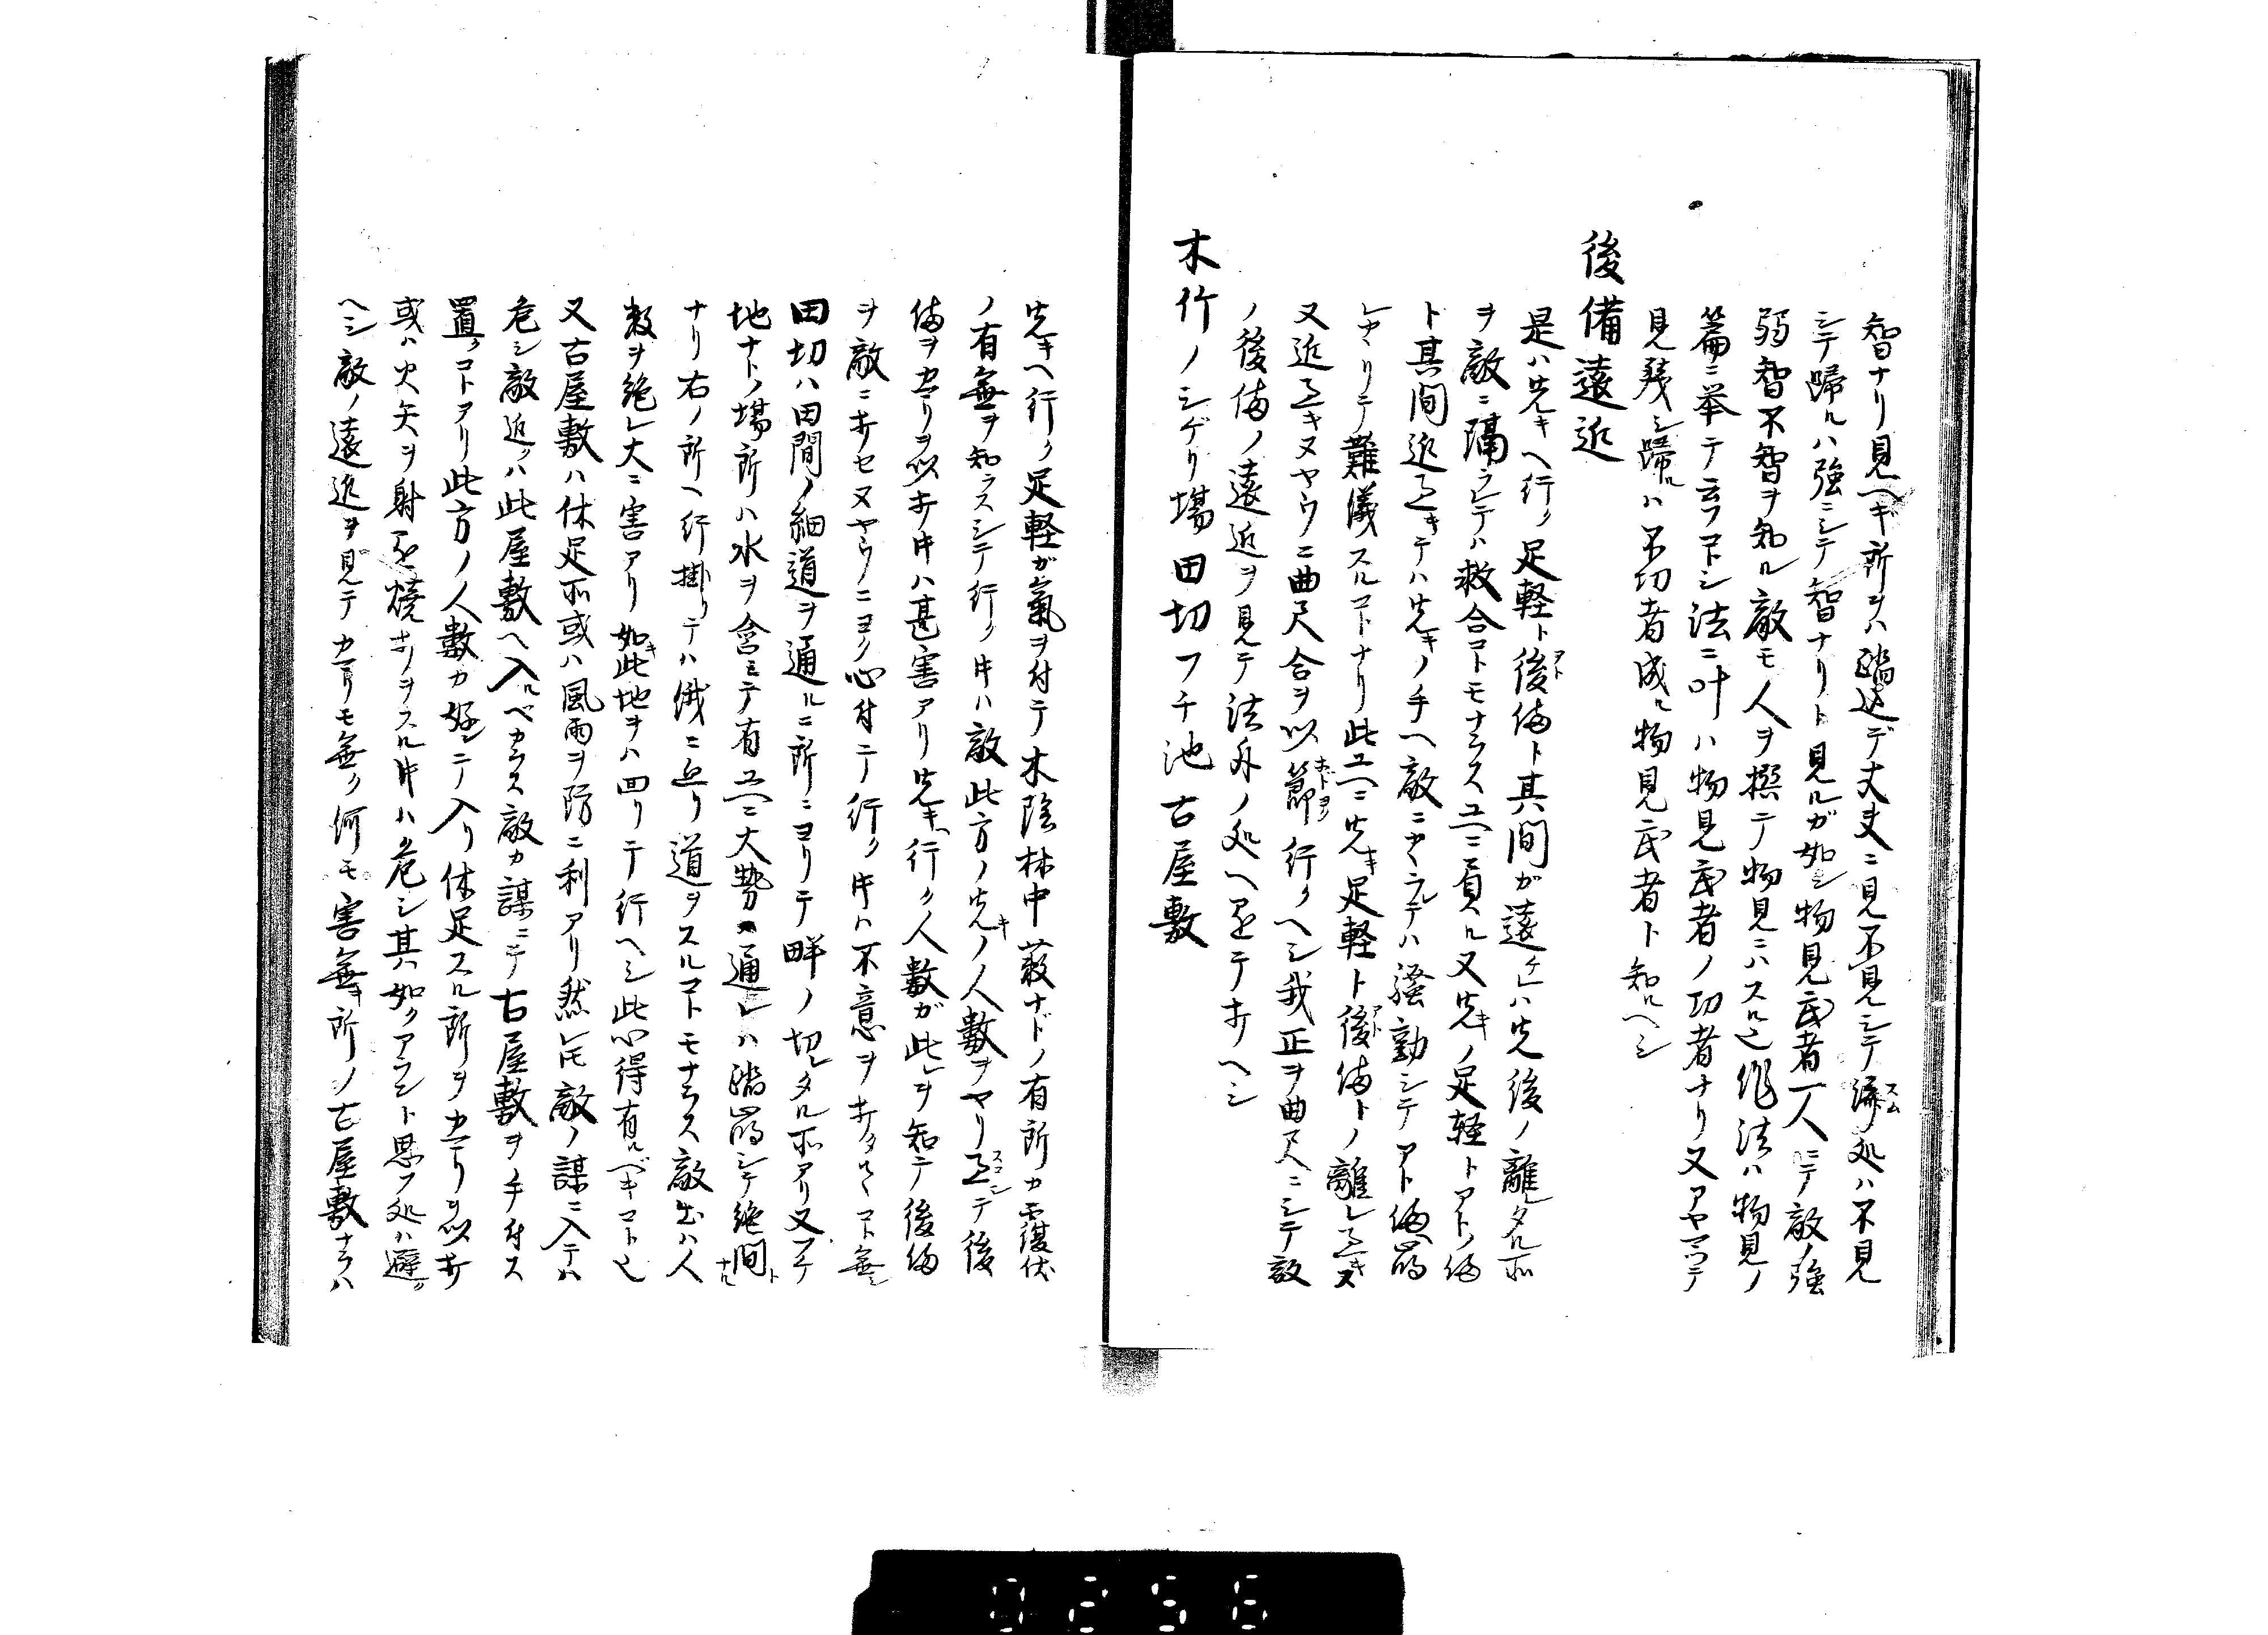 智ナリ見ヘギ所ヲハ踏込デ丈夫ニ見不見シテ済処ハ不見
シテ帰ルハ強ニシテ智ナリト見ルガ如シ物見武者一人ニテ敵ノ強
弱智不智ヲ知ル敵モ人ヲ撰テ物見ニハスル也作法ハ物見ノ
篇ニ挙テ云フコトシ法ニ叶ハ物見武者ノ功者ナリ又アヤマツテ
見残シ帰ルハ不功者成ル物見武者ト知ルヘシ
後備遠近
是ハ先キヘ行ク足軽ト後備ト其間ガ遠ケレハ先後ノ離レタル所
ヲ敵ニ隔ラレテハ救合コトモナラス故ニ負ル又先キノ足軽トアトノ備
ト其間近過キテハ先キノ手ヘ敵ニカヽラレテハ騒動シテアト備崩
レカヽリテ難儀スルコトナリ此故ニ先キ足軽ト後備トノ離レ過キス
又近過キヌヤウニ曲尺合ヲ以節行クヘシ我正ヲ曲尺ニシテ敵
ノ後備ノ遠近ヲ見テ法外ノ処ヘ至テ討ヘシ
木竹ノシゲリ場田切フチ池古屋敷
先キヘ行ク足軽ガ氣ヲ付テ木陰林中薮ナドノ有所カマリ伏
ノ有無ヲ知ラスシテ行ク時ハ敵此方ノ先キノ人数ヲヤリ過シテ後
備ヲカマリヲ以討時ハ甚害アリ先キヘ行ク人数ガ此レヲ知テ後備
ヲ敵ニ討セヌヤウニヨク心付テ行ク時ハ不意ヲ討タルヽコト無シ
田切ハ田間ノ細道ヲ通ルニ所ニヨリテ畔ノ切レタル所アリ又フケ
地ナトノ場所ハ水ヲ含ミテ有故ニ大勢通レハ踏崩シテ絶間ト
ナリ右ノ所ヘ行掛リテハ俄ニ返リ道ヲスルコトモナラス敵出ハ人
数ヲ絶レ大ニ害アリ如此キ地ヲハ回リテ行ヘシ此心得有ルベキコト也
又古屋敷ハ休足所或ハ風雨ヲ防ニ利アリ然レトモ敵ノ謀ニ入テハ
危シ敵近クハ此屋敷ヘ入ルベカラス敵カ謀ニテ古屋敷ヲ手付ス
置クコトアリ此方ノ人数カ好ンテ入リ休足スル所ヲカマリヲ以討
或ハ火矢ヲ射込焼討ヲスル時ハ危シ其ハ如クアラント思フ処ハ避ク
ヘシ敵ノ遠近ヲ見テカマリモ無ク何モ害無キ所ノ古屋敷ナラハ
9256